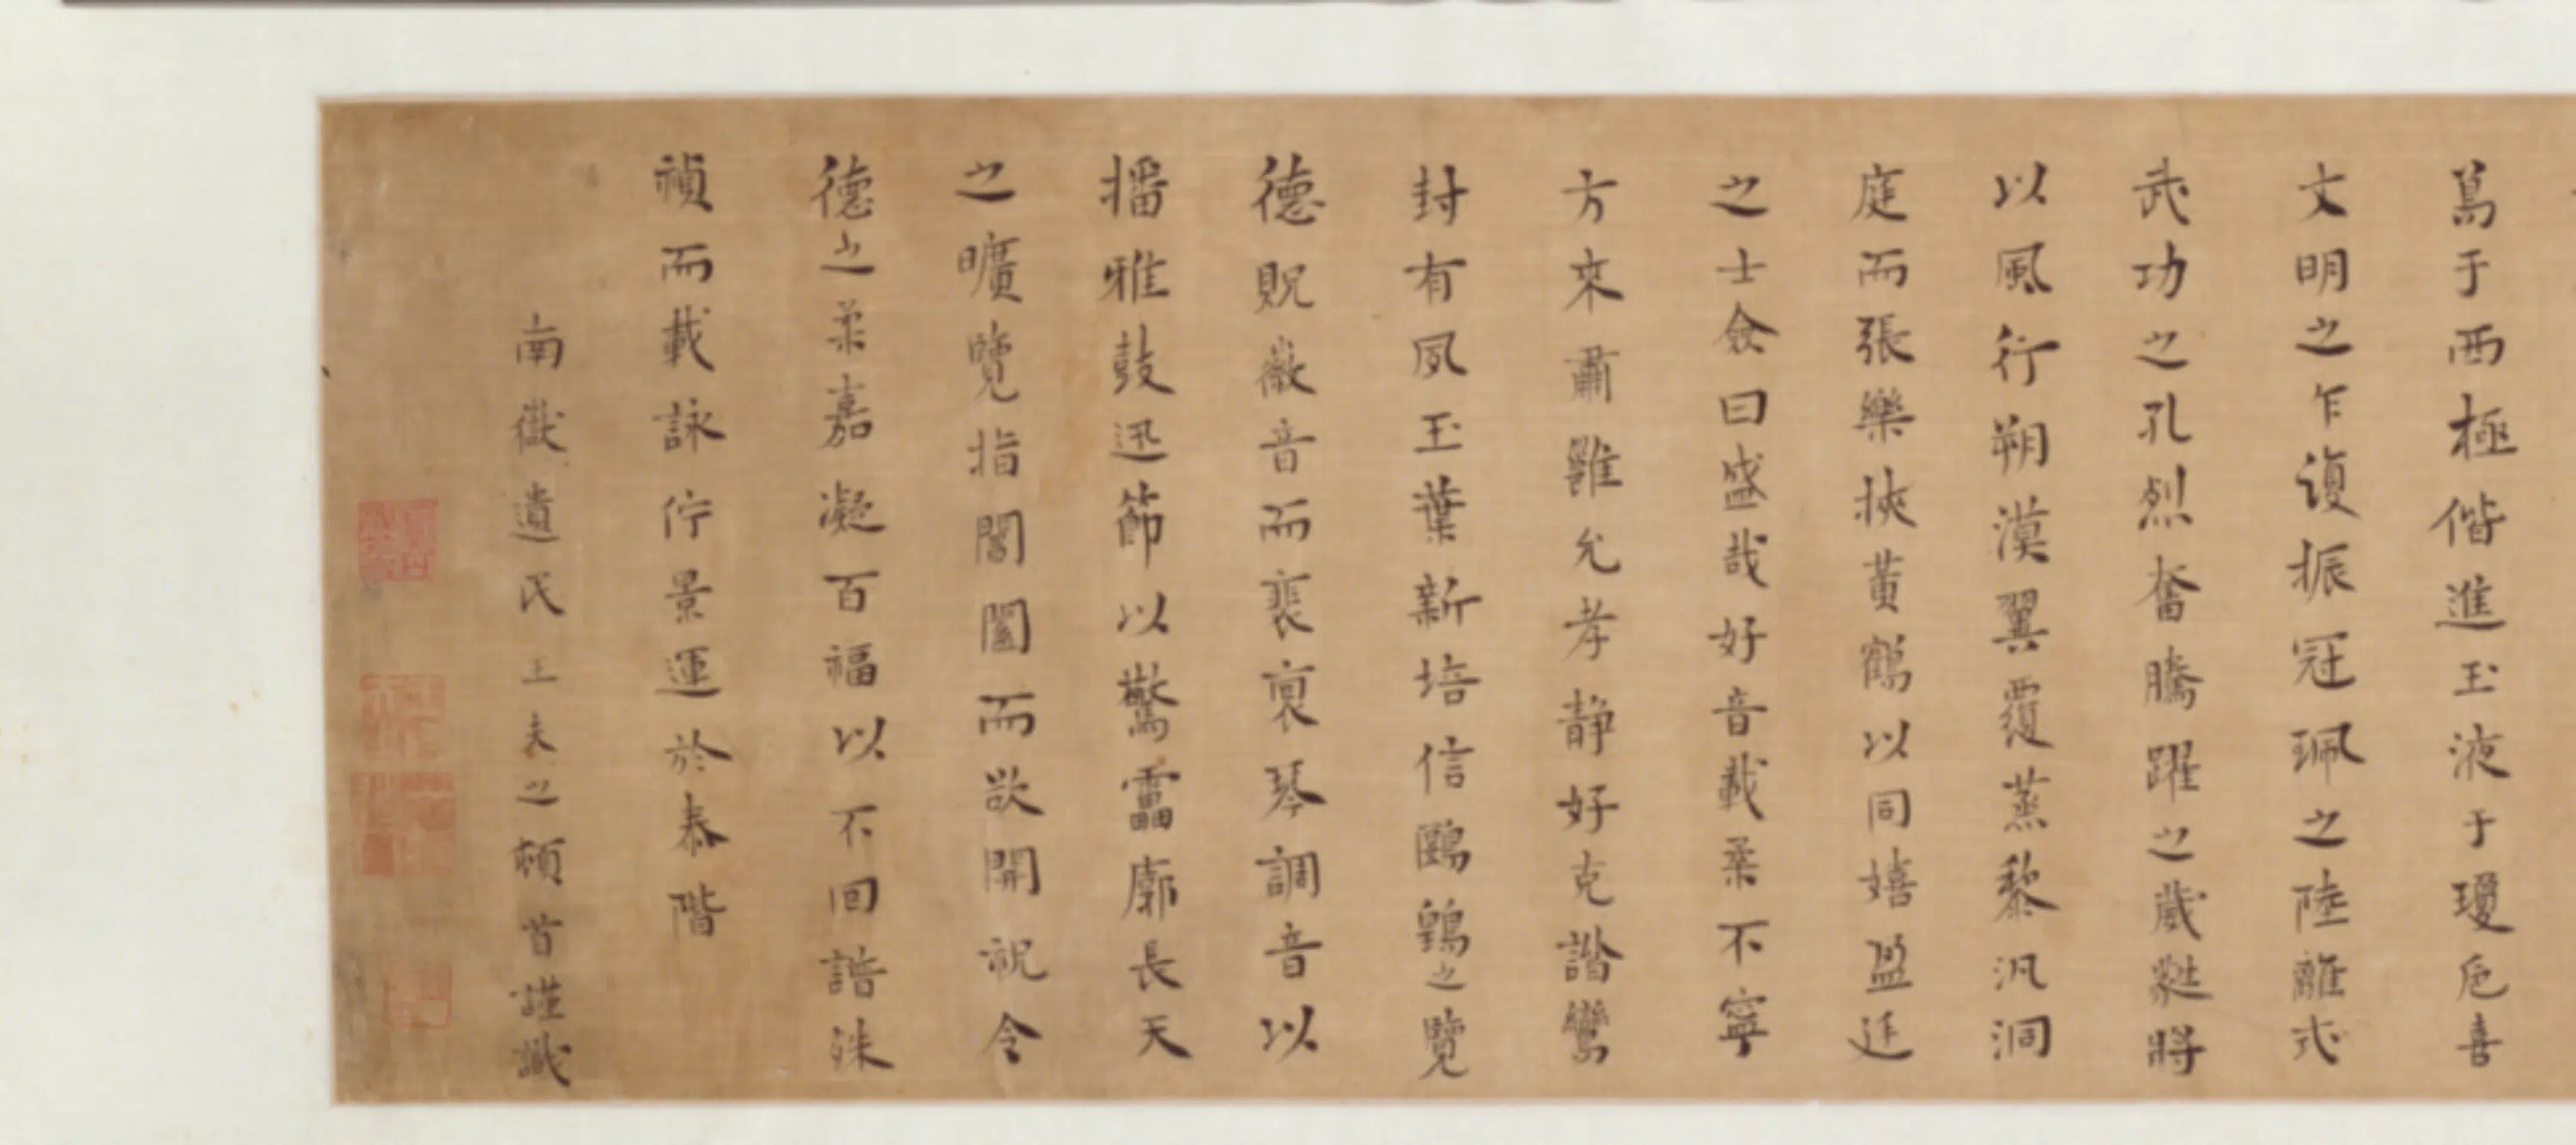 蔦于西極偕進玉液于瓊卮喜
文明之乍復振冠珮之陸離式
武功之孔烈奮騰躍之葳蕤將
以風行朔漠翼覆蒸黎汎洞
庭而張樂挾黃鶴以同嬉盈廷
之士僉曰盛哉好音載柔不寧
方來肅雝允孝靜好克諧鸞
封有夙玉葉新培信鷗鷄之覽
德貺徽音而裴裒琴調音以
播雅鼓迅節以驚靁廓長天
之曠覽指閶闔而欲開祝令
德之柔嘉凝百福以不回諧殊
禎而載詠佇景運於泰階
南嶽遺民王夫之頓首謹識